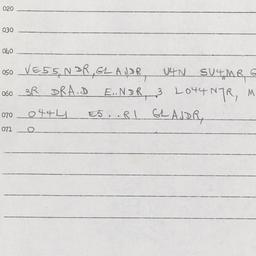 020
030
040
050 VE55,NDR,GLAJDR, U4N SU4MR, G
060 3R DRA.D E..NDR, 3 LO44N7R, M
070 O44L1 E5..RI GLAJDR,
071 O